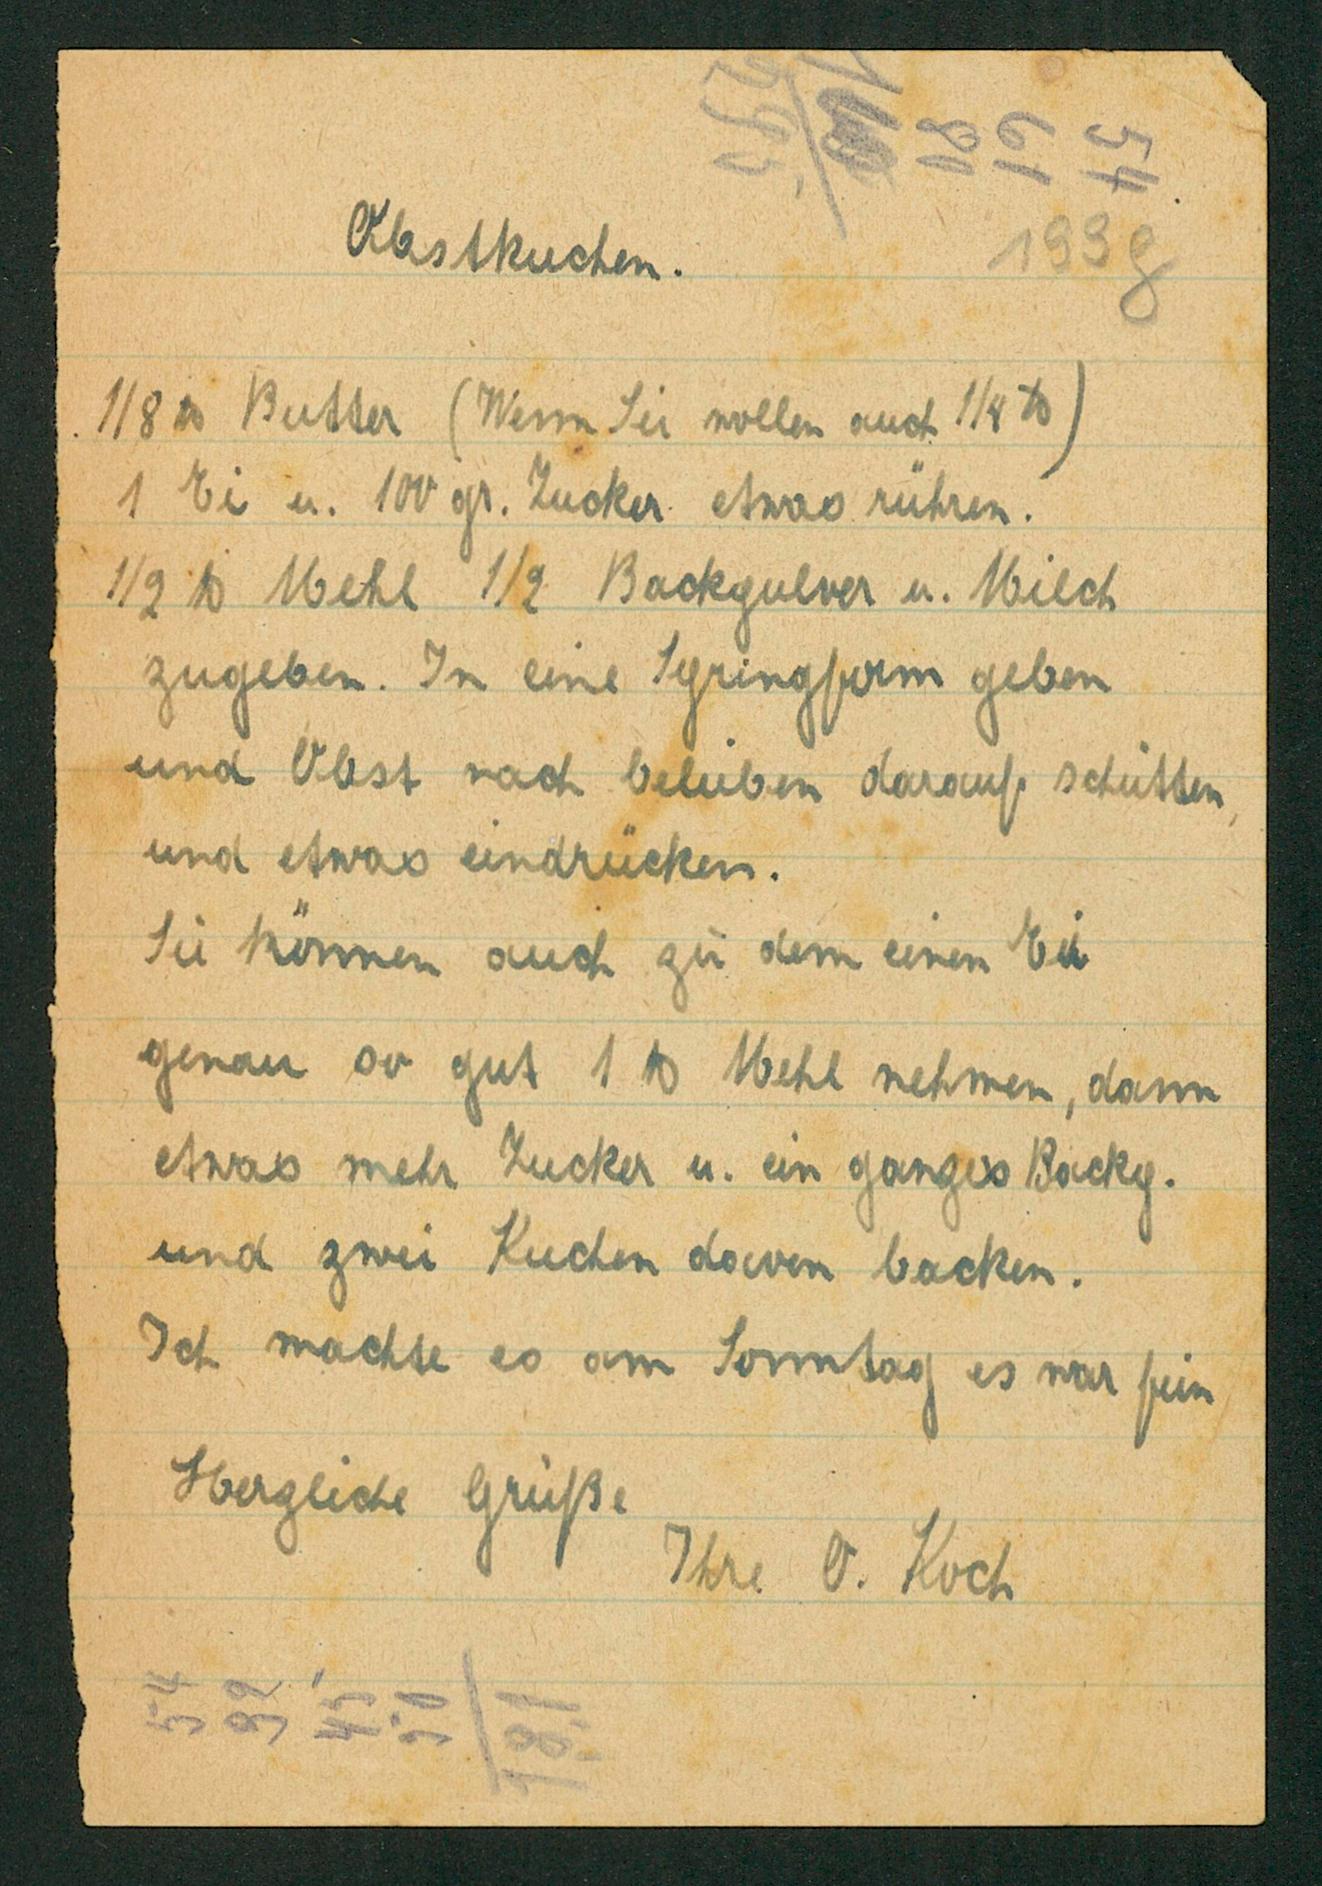 54
61
81
193 g
Obstkuchen.
1/8 ℔ Butter (Wenn Sie wollen auch 1/4 ℔)
1 Ei u. 100 gr. Zucker etwas rühren.
1/2 ℔ Mehl 1/2 Backpulver u. Milch
zugeben. In eine Springform geben
und Obst nach belieben darauf schütten,
und etwas eindrücken.
Sie können auch zu dem einen Ei
genau so gut 1 ℔ Mehl nehmen, dann
etwas mehr Zucker u. ein ganzes Backp.
und zwei Kuchen davon backen.
Ich machte es am Sonntag es war fein
Herzliche Grüße
Ihre O. Koch
54
32
45
50
181